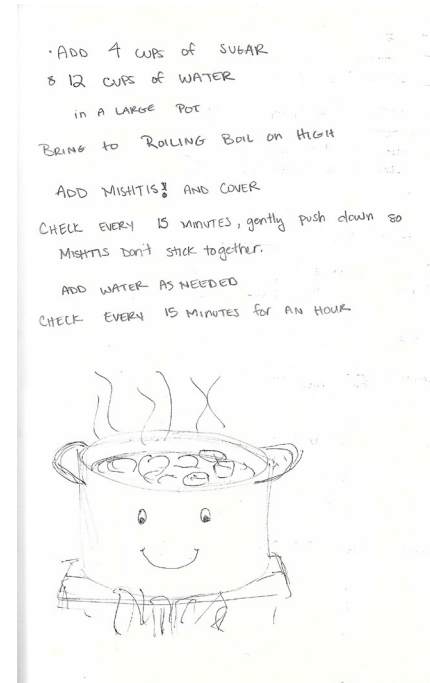 · ADD 4 CUPS of SUGAR
& 12 CUPS of WATER
in A LARGE POT
BRING to ROILING BOIL on HIGH
ADD MISHTIS! AND COVER
CHECK EVERY 15 MINUTES, gently push down so
MISHTIS Don't stick together.
ADD WATER AS NEEDED
CHECK EVERY 15 MINUTES for AN HOUR